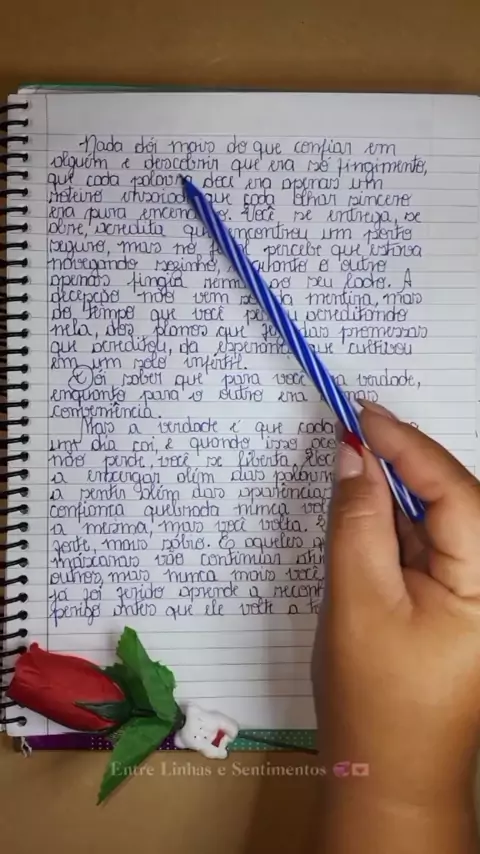 Nada dói mais do que confiar em
alguém e descobrir que era só fingimento,
que cada palavra doce era apenas um
roteiro que cada olhar sincero
era pura . Você se entrega, se
abre, acredita que encontrou um porto
seguro, mas no percebe que estava
navegando sozinho, enquanto o outro
apenas fingia remar ao seu lado. A
decepção não vem só da mentira, mas
do tempo que você acreditando
nela, dos planos que promessas
que acreditou, da esperança que cultivou
em um solo infértil.
E dói saber que para você era verdade,
enquanto para o outro era
conveniência.
Mas a verdade é que cada
um dia cai, e quando isso
não perde, você se liberta. Você
a enxergar além das
a sentir além das aparências
confiança quebrada nunca
a mesma, mas você volta.
forte, mais sábio. E aqueles
máscaras vão continuar
outros, mas nunca mais você,
já foi ferido aprende a
perigo antes que ele volte a
Entre Linhas e Sentimentos